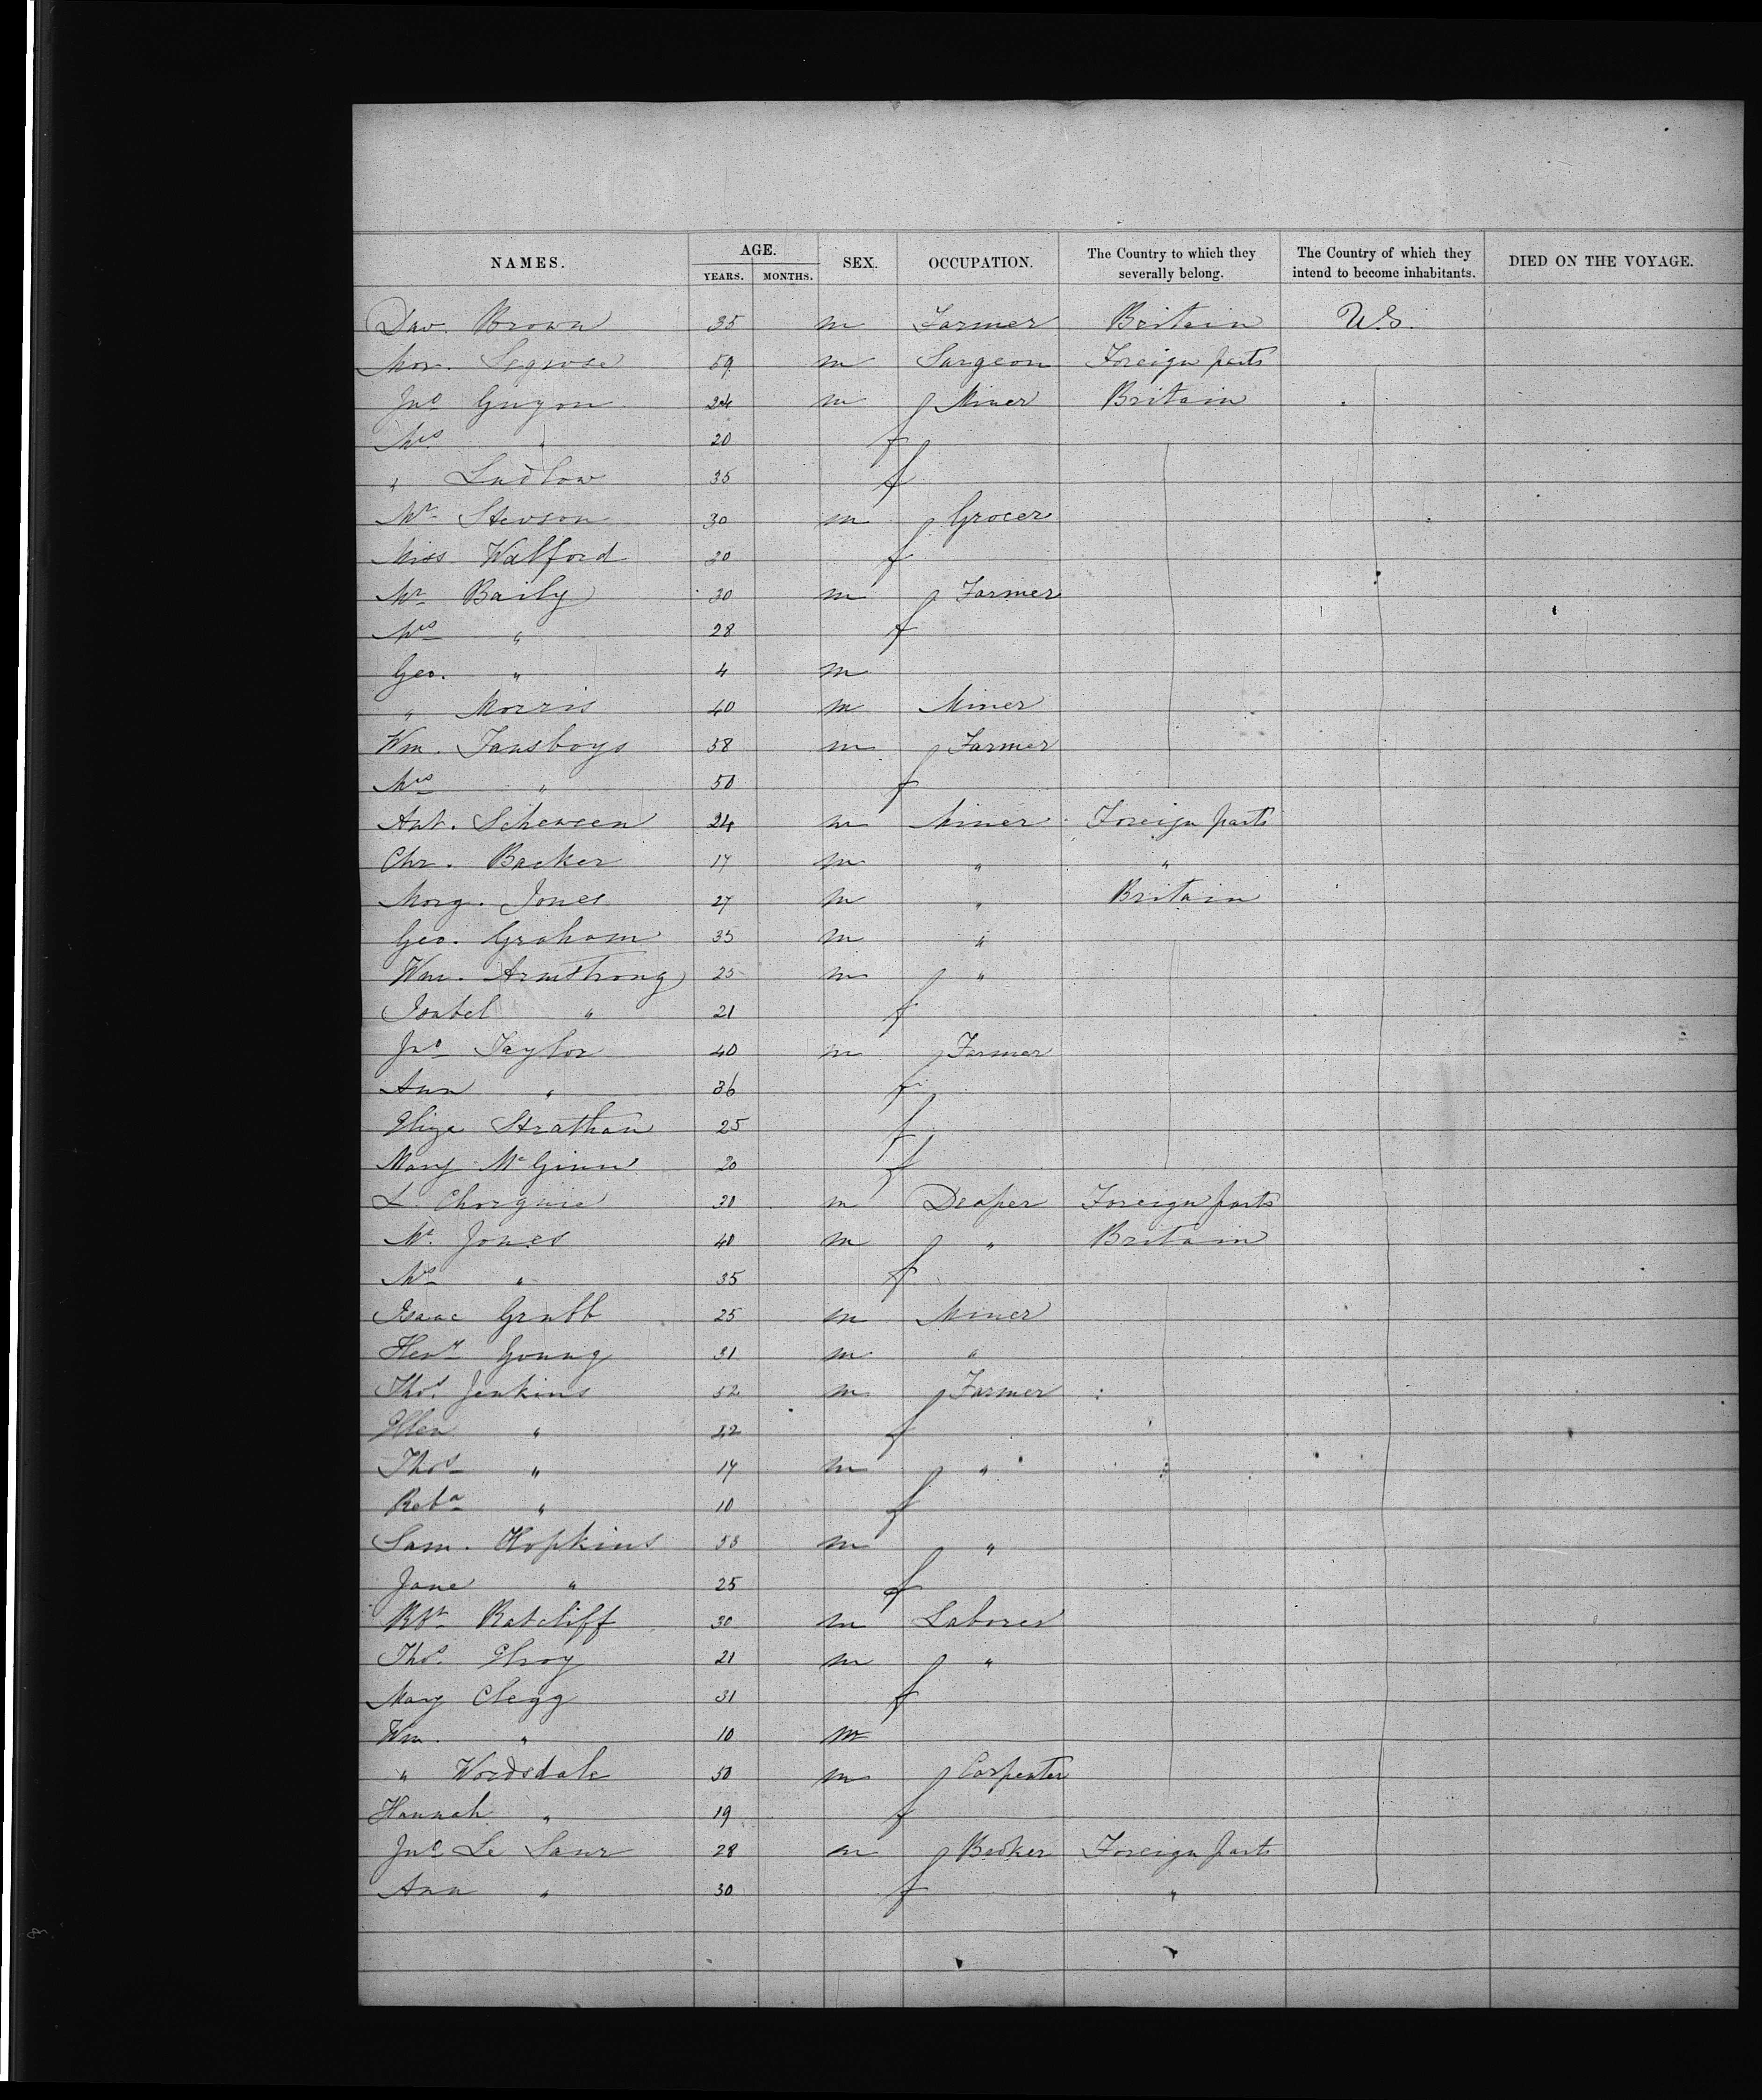 NAMES. AGE. SEX. OCCUPATION. The Country to which they severally belong. The Country of which they intend to become inhabitants. DIED ON THE VOYAGE.
YEARS. MONTHS.
Dav. Brown 35 m Farmer Britain U.S.
Mor. Segrose 59 m Surgeon Foreign parts
Jno Guyon 24 m Miner Britain
Mrs " 20 f
" Ludlow 35 f
Mr Stevson 30 m Grocer
Miss Watford 20 f
Mr Baily 30 m Farmer
Mrs " 28 f
Geo. " 4 m
" Morris 40 m Miner
Wm. Tansboys 58 m Farmer
Mrs " 50 f
Ant. Scheween 24 m Miner Foreign parts
Chr. Backer 17 m " "
Morg. Jones 27 m " Britain
Geo. Graham 35 m "
Wm. Armstrong 25 m "
Isabel " 21 f
Jno Taylor 40 m Farmer
Ann " 36 f
Eliza Strathan 25 f
Mary McGinn 20 f
L. Chorguie 30 m Draper Foreign parts
Mr. Jones 40 m " Britain
Mrs " 35 f
Isaac Grubb 25 m Miner
Henry Young 31 m "
Thos. Jenkins 52 m Farmer
Ellen " 52 f
Thos " 17 m "
Reba " 10 f
Sam. Hopkins 53 m "
Jane " 25 f
Rbt Ratcliff 30 m Laborer
Thos. Elroy 21 m "
Mary Clegg 31 f
Wm. " 10 m
" Woodsdale 50 m Carpenter
Hannah " 19 f
Jno Le Saur 28 m Backer Foreign parts
Ann " 30 f "